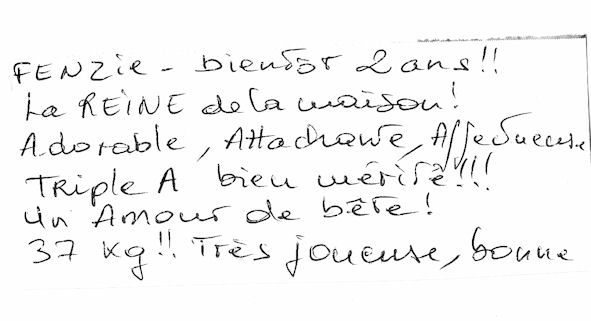 FENZie - bientôt 2 ans!!
La REINE de la maison!
Adorable, Attachante, Affectueuse
TRiple A bien mérité!!!
Un Amour de bête!
37 kg!! Très joueuse, bonne